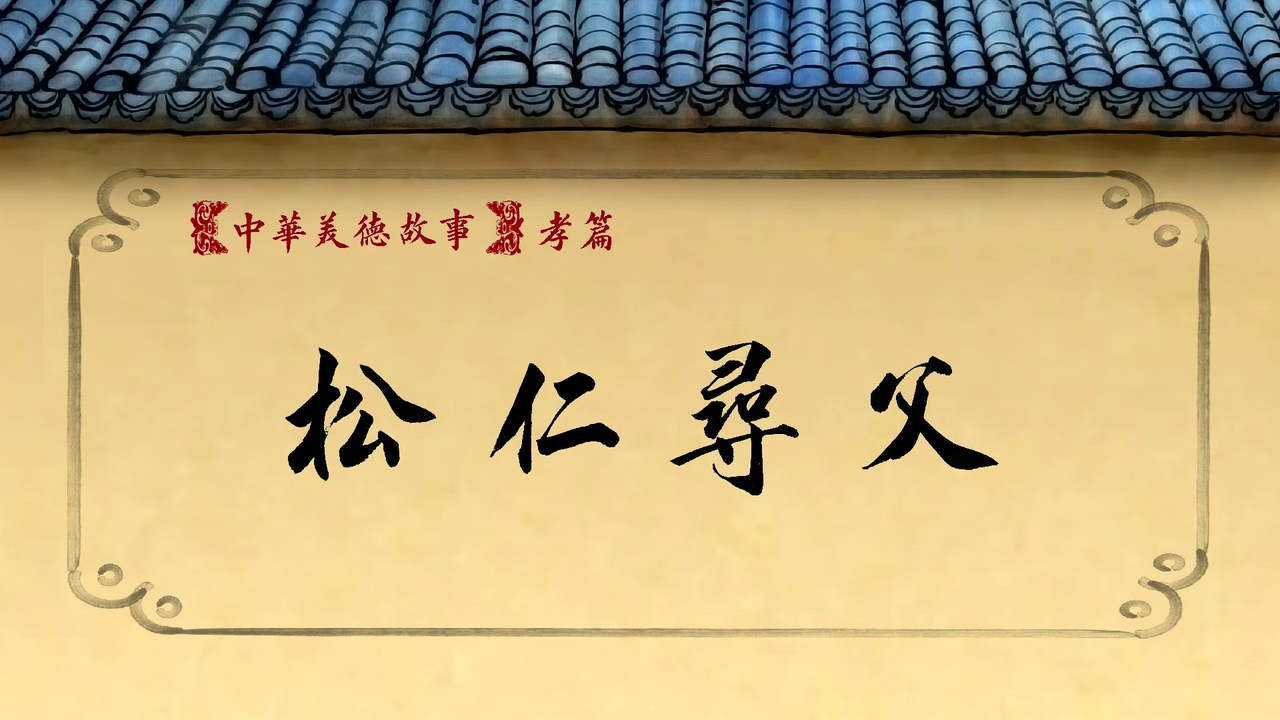 【中華美德故事】孝篇
松仁尋父